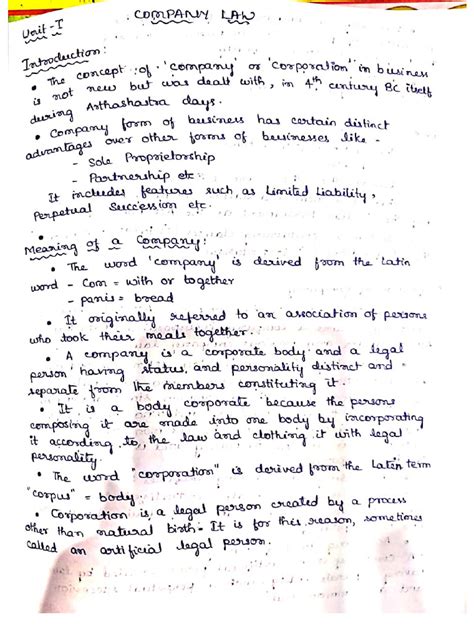 COMPANY LAW
Unit-I
Introduction:
• The concept of 'company' or 'Corporation' in business
is not new but was dealt with, in 4th century BC itself
during Arthashastra days.
• Company form of business has certain distinct
advantages over other forms of businesses like -
- Sole Proprietorship
- Partnership etc.
It includes features such as Limited Liability,
Perpetual Succession etc.
Meaning of a Company:
• The word 'company' is derived from the Latin
word - Com = with or together
- panis = bread
• It originally referred to an association of persons
who took their meals together.
• A company is a corporate body and a legal
person having status and personality distinct and
separate from the members constituting it.
• It is a body corporate because the persons
composing it are made into one body by incorporating
it according to the law and clothing it with legal
personality.
• The word "corporation" is derived from the Latin term
"corpus" = body.
• Corporation is a legal person created by a process
other than natural birth. It is for this reason, sometimes
called an artificial legal person.